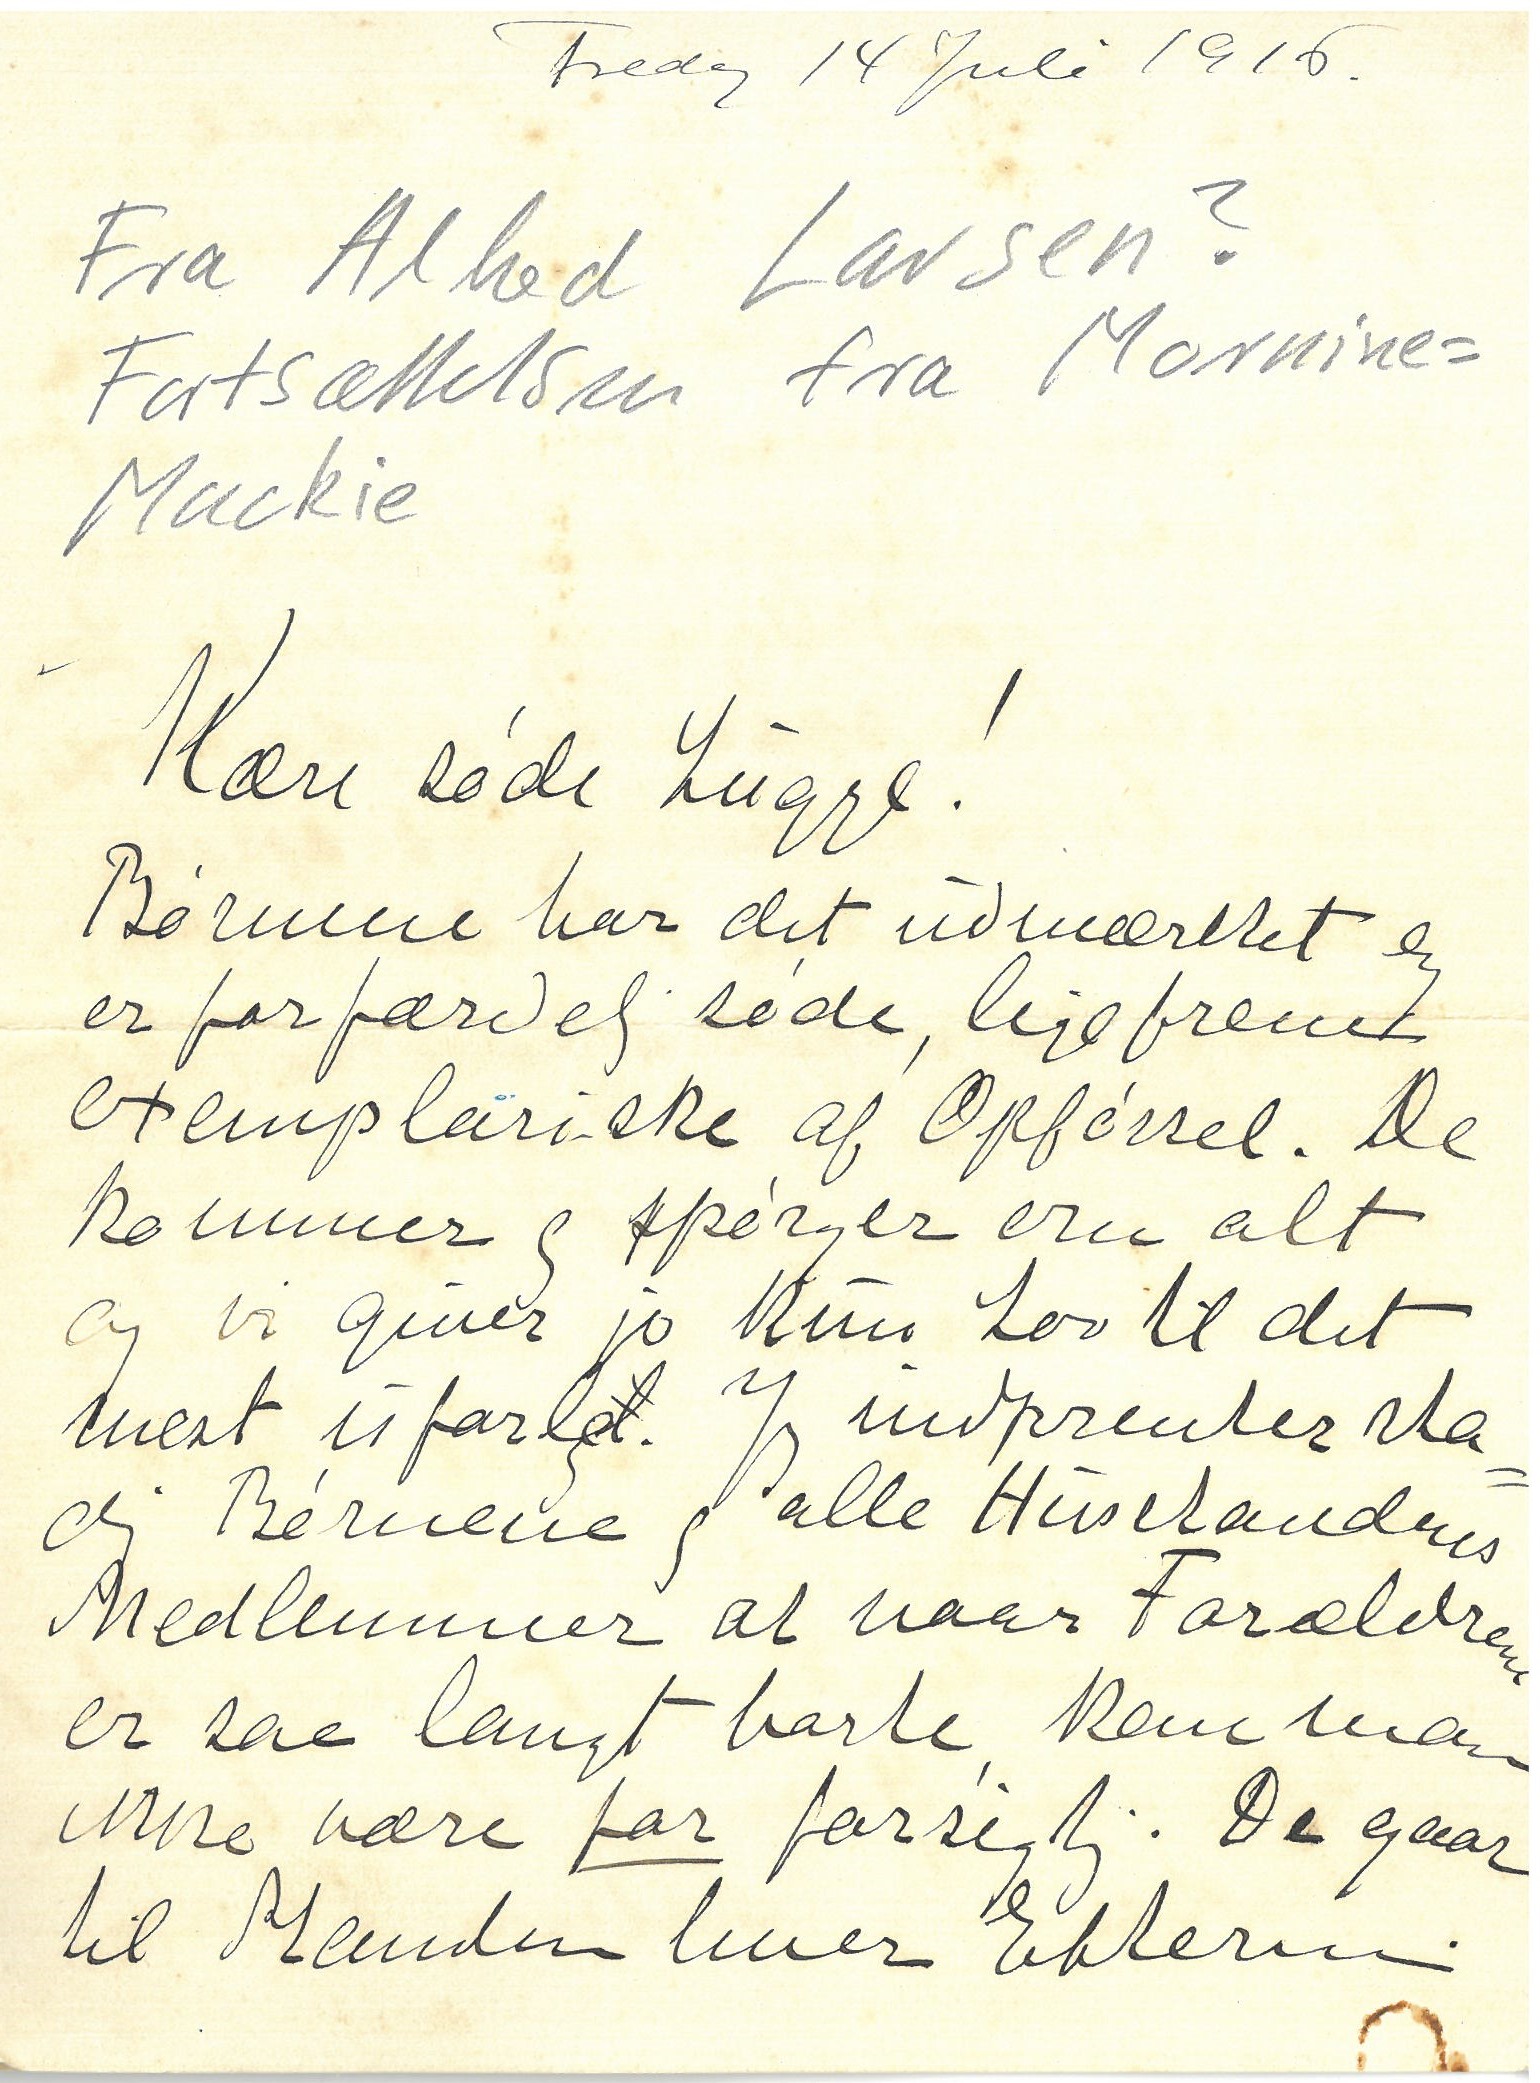 Fredag 14 Juli 1916.
Fra Alhed Larsen?
Fortsættelsen fra Mornine=
Mackie
Kære søde Lugge!
Børnene har det udmærket og
er forfærdelig søde, ligefrem
exemplariske af Opførsel. De
kommer og spørger om alt
og vi giver jo kun Lov til det
mest ufarlige. Jeg indprenter sta=
dig Børnene og alle Husstandens
Medlemmer at naar Forældrene
er saa langt borte, kan man
ikke være for forsigtig. De gaar
til Stranden hver Efterm.